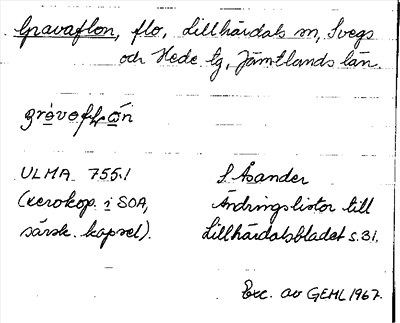 Gravaflon, flo, Lillhärdals sn, Svegs
och Hede tg, Jämtlands län.
ULMA 755:1
(xerokop. i SOA,
särsk. kapsel).
S. Åsander
Ändringslistor till
Lillhärdalsbladet s. 31.
Exc. av GEHL 1967.